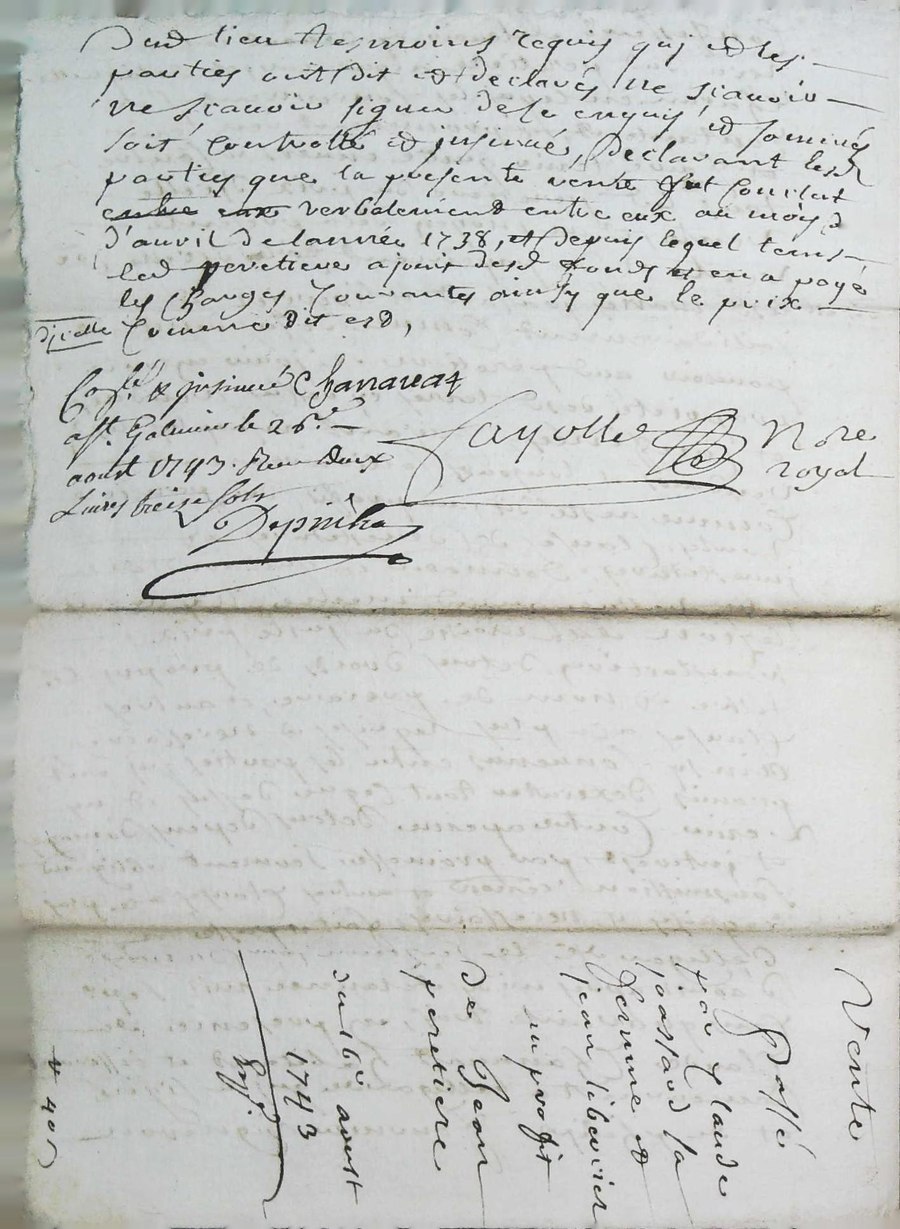 dud lieu tesmoins requis qui et les
parties ont dit et declarés ne scavoir
ne scavoir signer de ce enquis et sommés
soit controllé et insinué, declarant lesd
parties que la presente vente fut conclut
entre eux verbalement entre eux au moys
d'auvril de lannée 1738, et depuis lequel tems
led peretiere a jouis desd fonds et en a payé
les charges courantes ainsy que le prix
d'icelle comme dit est,
Con.lé & insinué
a St. Galmier le 26.e
aoust 1743. Receu deux
Livres treise sols
Fayolle Nore
royal
Vente
Passé
par Claude
la
femme et
jean
au profit
de Jean
peretiere
du 16 aoust
1743
Exp.